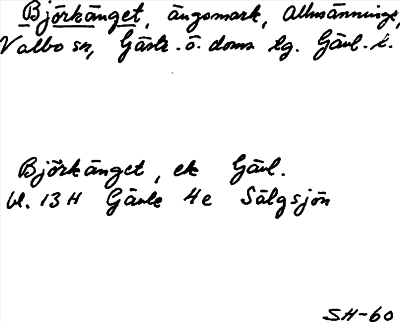 Björkänget, ängsmark, Allmänninge,
Valbo sn, Gästr. ö. doms. lg. Gävl. l.
Björkänget, ek Gävl.
bl. 13 H Gävle 4e Sälgsjön
SH-60